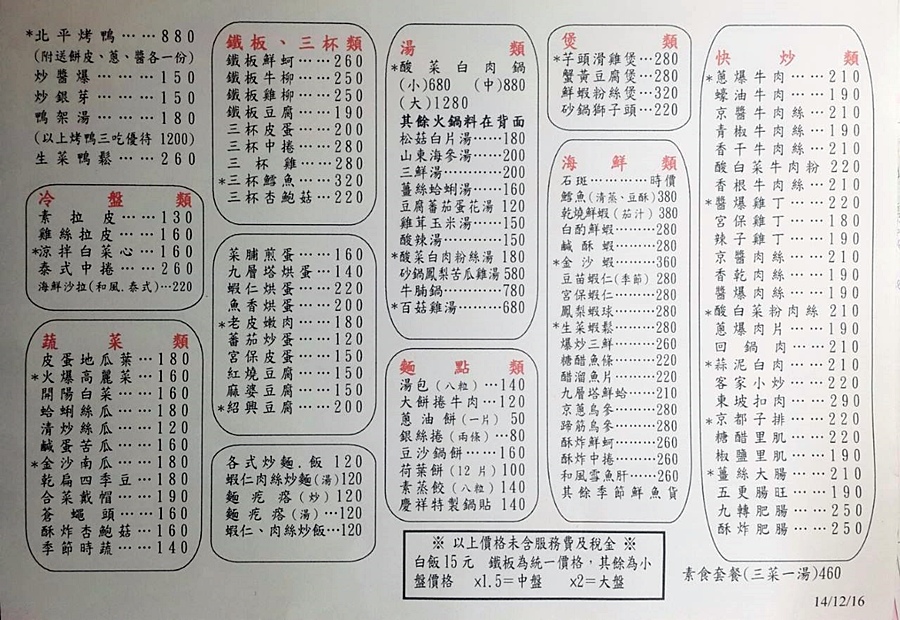 *北平烤鴨……880
(附送餅皮、蔥、醬各一份)
炒醬爆……150
炒銀芽……150
鴨架湯……180
(以上烤鴨三吃優待 1200)
生菜鴨鬆……260
冷盤類
素拉皮……130
雞絲拉皮……160
*涼拌白菜心…160
泰式中捲……260
海鮮沙拉(和風.泰式)…220
蔬菜類
皮蛋地瓜葉…180
*火爆高麗菜…160
開陽白菜…160
蛤蜊絲瓜…180
清炒絲瓜…120
鹹蛋苦瓜…160
*金沙南瓜…180
乾扁四季豆…180
合菜戴帽…190
蒼蠅頭…160
酥炸杏鮑菇…160
季節時蔬…140
鐵板、三杯類
鐵板鮮蚵……260
鐵板牛柳……250
鐵板雞柳……250
鐵板豆腐……190
三杯皮蛋……200
三杯中捲……280
三杯雞……280
*三杯鱈魚……320
三杯杏鮑菇……220
菜脯煎蛋…160
九層塔烘蛋…140
蝦仁烘蛋…220
魚香烘蛋…200
*老皮嫩肉…180
蕃茄炒蛋…120
宮保皮蛋…150
紅燒豆腐…150
麻婆豆腐…150
*紹興豆腐…200
各式炒麵.飯 120
蝦仁肉絲炒麵(湯)120
麵疙瘩(炒) 120
麵疙瘩(湯)…120
蝦仁、肉絲炒飯…120
湯類
*酸菜白肉鍋
(小)680 (中)880
(大)1280
其餘火鍋料在背面
松菇白片湯……180
山東海參湯……200
三鮮湯………200
薑絲蛤蜊湯……160
豆腐蕃茄蛋花湯 120
雞茸玉米湯……150
酸辣湯………150
*酸菜白肉粉絲湯 180
砂鍋鳳梨苦瓜雞湯 580
牛腩鍋………780
*百菇雞湯………680
麵點類
湯包(八粒)…140
大餅捲牛肉…120
蔥油餅(一片) 50
銀絲捲(兩條)…80
豆沙鍋餅…160
荷葉餅(12片)100
素蒸餃(八粒) 140
慶祥特製鍋貼 140
煲類
*芋頭滑雞煲…280
蟹黃豆腐煲…280
鮮蝦粉絲煲…320
砂鍋獅子頭…220
海鮮類
石斑…………時價
鱈魚(清蒸、豆酥)380
乾燒鮮蝦(茄汁) 380
白酌鮮蝦………280
鹹酥蝦………280
*金沙蝦………360
豆苗蝦仁(季節) 280
宮保蝦仁………280
鳳梨蝦球………280
*生菜蝦鬆………280
爆炒三鮮………260
糖醋魚條………220
醋溜魚片………220
九層塔鮮蛤……210
京蔥烏參………280
蹄筋烏參………280
酥炸鮮蚵………260
酥炸中捲………260
和風雪魚肝……260
其餘季節鮮魚貨
快炒類
*蔥爆牛肉……210
蠔油牛肉……190
京醬牛肉絲…210
青椒牛肉……190
香干牛肉絲…210
酸白菜牛肉粉 220
香根牛肉絲…210
*醬爆雞丁……220
宮保雞丁……180
辣子雞丁……190
京醬肉絲……190
香乾肉絲……190
醬爆肉絲……190
*酸白菜粉肉絲 210
蔥爆肉片……190
回鍋肉……210
*蒜泥白肉……210
客家小炒……220
東坡扣肉……290
*京都子排……220
糖醋里肌……220
椒鹽里肌……190
*薑絲大腸……210
五更腸旺……190
九轉肥腸……250
酥炸肥腸……250
※ 以上價格未含服務費及稅金 ※
白飯15元 鐵板為統一價格，其餘為小
盤價格 x1.5=中盤 x2=大盤
素食套餐(三菜一湯)460
14/12/16